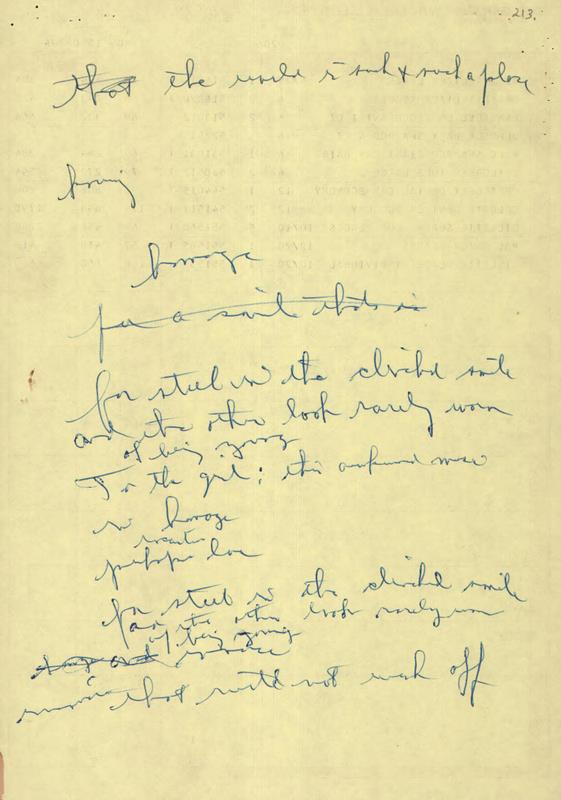 213.
that the world is such & such a place
boring
homage
for a smile that is
for steel in the clinched smile
and the other look rarely worn
of being young
To the girl; this confused muse
in homage
perhaps love
for steel in the clinched smile
for the other look rarely worn
of being young
and
that will not wash off